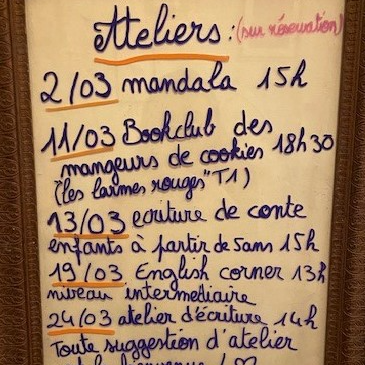 Ateliers : (sur réservation)
2/03 mandala 15h
11/03 Bookclub des
mangeurs de cookies 18h30
(les larmes rouges" T1)
13/03 ecriture de conte
enfants à partir de 5ans 15h
19/03 English corner 13h
niveau intermediaire
24/03 atelier d'écriture 14h
Toute suggestion d'atelier